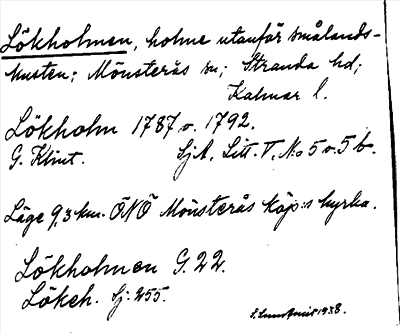 Lökholmen, holme utanför smålands-
kusten; Mönsterås sn; Stranda hd;
Kalmar l.
Lökholm 1787 o. 1792.
G. Klint. SjA, Litt. V, No 5 o. 5 b.
Läge 9,3 km. ÖNÖ Mönsterås köp:s kyrka.
Lökholmen G. 22.
Lökch. Sj: 255.
1938.